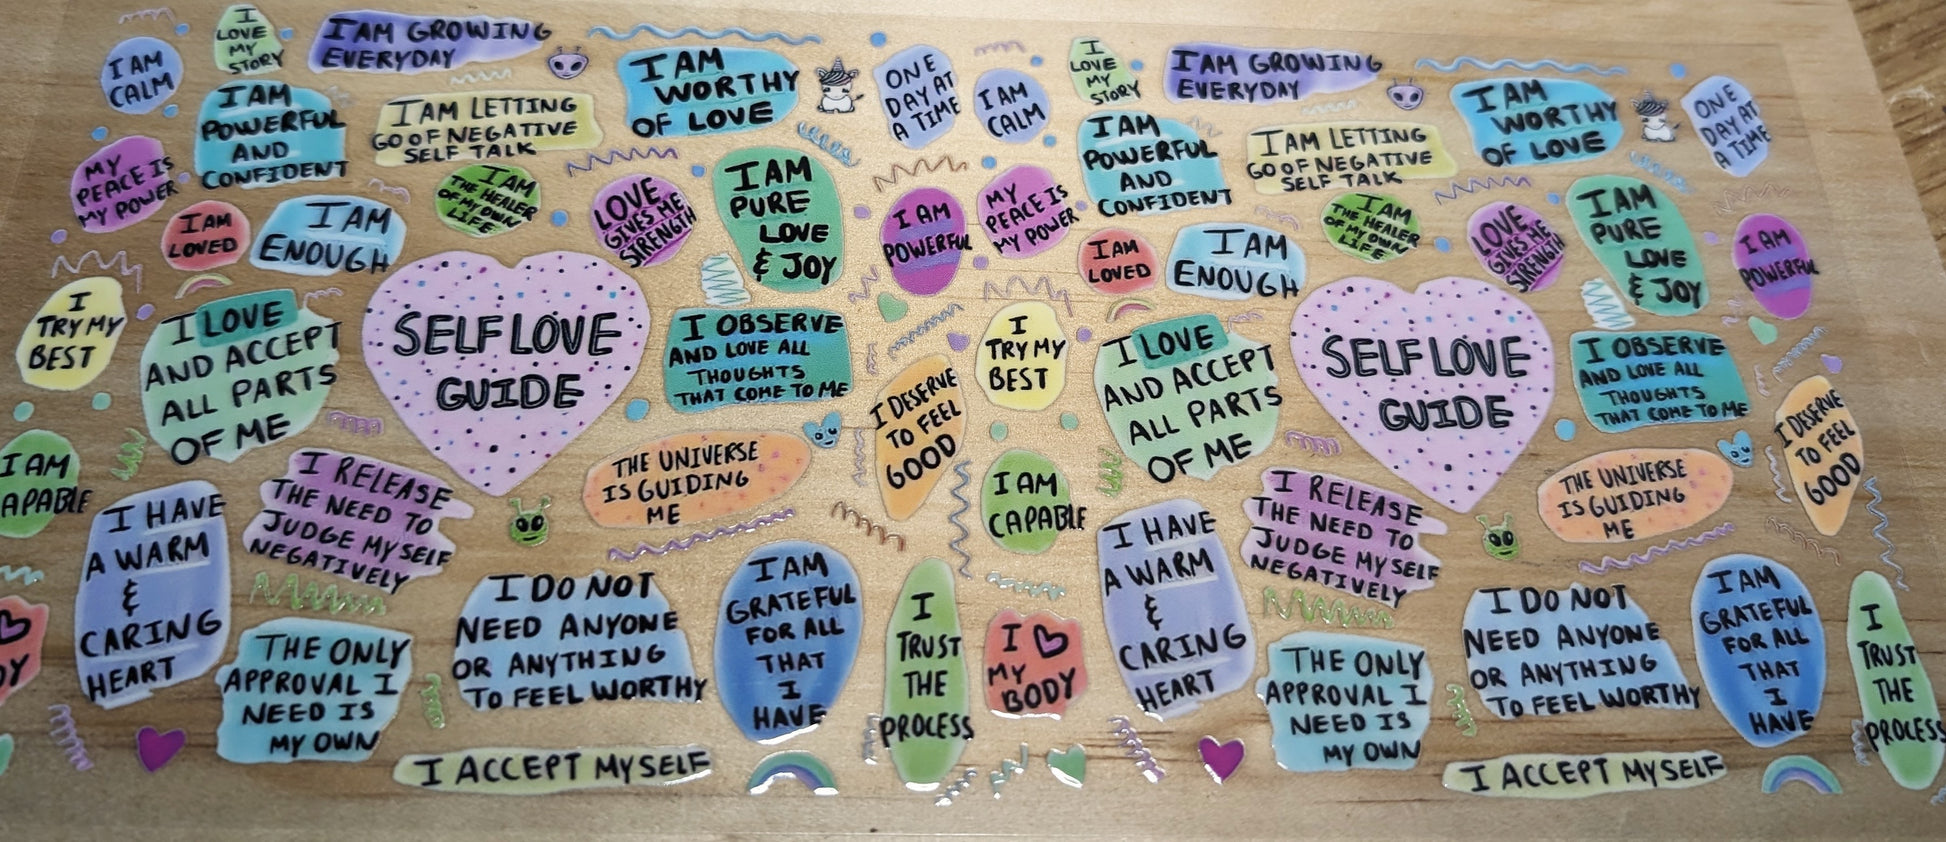 I AM
CALM
I
LOVE
MY
STORY
I AM GROWING
EVERYDAY
I AM
WORTHY
OF LOVE
ONE
DAY AT
A TIME
I AM
POWERFUL
AND
CONFIDENT
I AM LETTING
GO OF NEGATIVE
SELF TALK
MY
PEACE IS
MY POWER
I AM
LOVED
I AM
ENOUGH
I AM
THE HEALER
OF MY OWN
LIFE
LOVE
GIVES ME
STRENGTH
I AM
PURE
LOVE
& JOY
I AM
POWERFUL
I
TRY MY
BEST
I LOVE
AND ACCEPT
ALL PARTS
OF ME
SELF LOVE
GUIDE
I OBSERVE
AND LOVE ALL
THOUGHTS
THAT COME TO ME
I DESERVE
TO FEEL
GOOD
I AM
APABLE
I HAVE
A WARM
&
CARING
HEART
I RELEASE
THE NEED TO
JUDGE MYSELF
NEGATIVELY
THE UNIVERSE
IS GUIDING
ME
DY
THE ONLY
APPROVAL I
NEED IS
MY OWN
I DO NOT
NEED ANYONE
OR ANYTHING
TO FEEL WORTHY
I AM
GRATEFUL
FOR ALL
THAT
I
HAVE
I
TRUST
THE
PROCESS
I ACCEPT MYSELF
I AM
CALM
I
LOVE
MY
STORY
I AM GROWING
EVERYDAY
I AM
WORTHY
OF LOVE
ONE
DAY AT
A TIME
I AM
POWERFUL
AND
CONFIDENT
I AM LETTING
GO OF NEGATIVE
SELF TALK
MY
PEACE IS
MY POWER
I AM
LOVED
I AM
ENOUGH
I AM
THE HEALER
OF MY OWN
LIFE
LOVE
GIVES ME
STRENGTH
I AM
PURE
LOVE
& JOY
I AM
POWERFUL
I
TRY MY
BEST
I LOVE
AND ACCEPT
ALL PARTS
OF ME
SELF LOVE
GUIDE
I OBSERVE
AND LOVE ALL
THOUGHTS
THAT COME TO ME
I DESERVE
TO FEEL
GOOD
I AM
CAPABLE
I HAVE
A WARM
&
CARING
HEART
I RELEASE
THE NEED TO
JUDGE MYSELF
NEGATIVELY
THE UNIVERSE
IS GUIDING
ME
I ♡
MY
BODY
THE ONLY
APPROVAL I
NEED IS
MY OWN
I DO NOT
NEED ANYONE
OR ANYTHING
TO FEEL WORTHY
I AM
GRATEFUL
FOR ALL
THAT
I
HAVE
I
TRUST
THE
PROCESS
I ACCEPT MYSELF